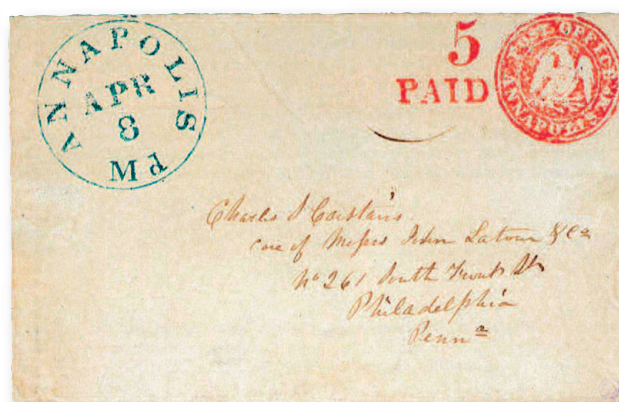 ANNAPOLIS Md
APR
8
5
PAID
POST OFFICE
ANNAPOLIS Md
Charles S Carstairs
care of Messrs John Latour & Co
No 261 South Front St
Philadelphia
Penna